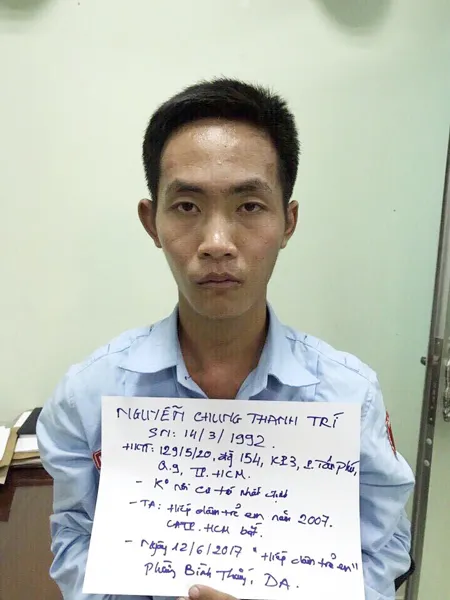 NGUYỄN CHUNG THANH TRÍ
SN: 14/3/1992.
HKTT: 129/5/20, 154, KP3, P. Tân Phú,
Q.9, TP. HCM.
- K° nơi cư trú nhất định
- TA: Hiếp dâm trẻ em năm 2007.
CATP. HCM bắt.
- Ngày 12/6/2017 "Hiếp dâm trẻ em"
Phường Bình Thắng, DA.